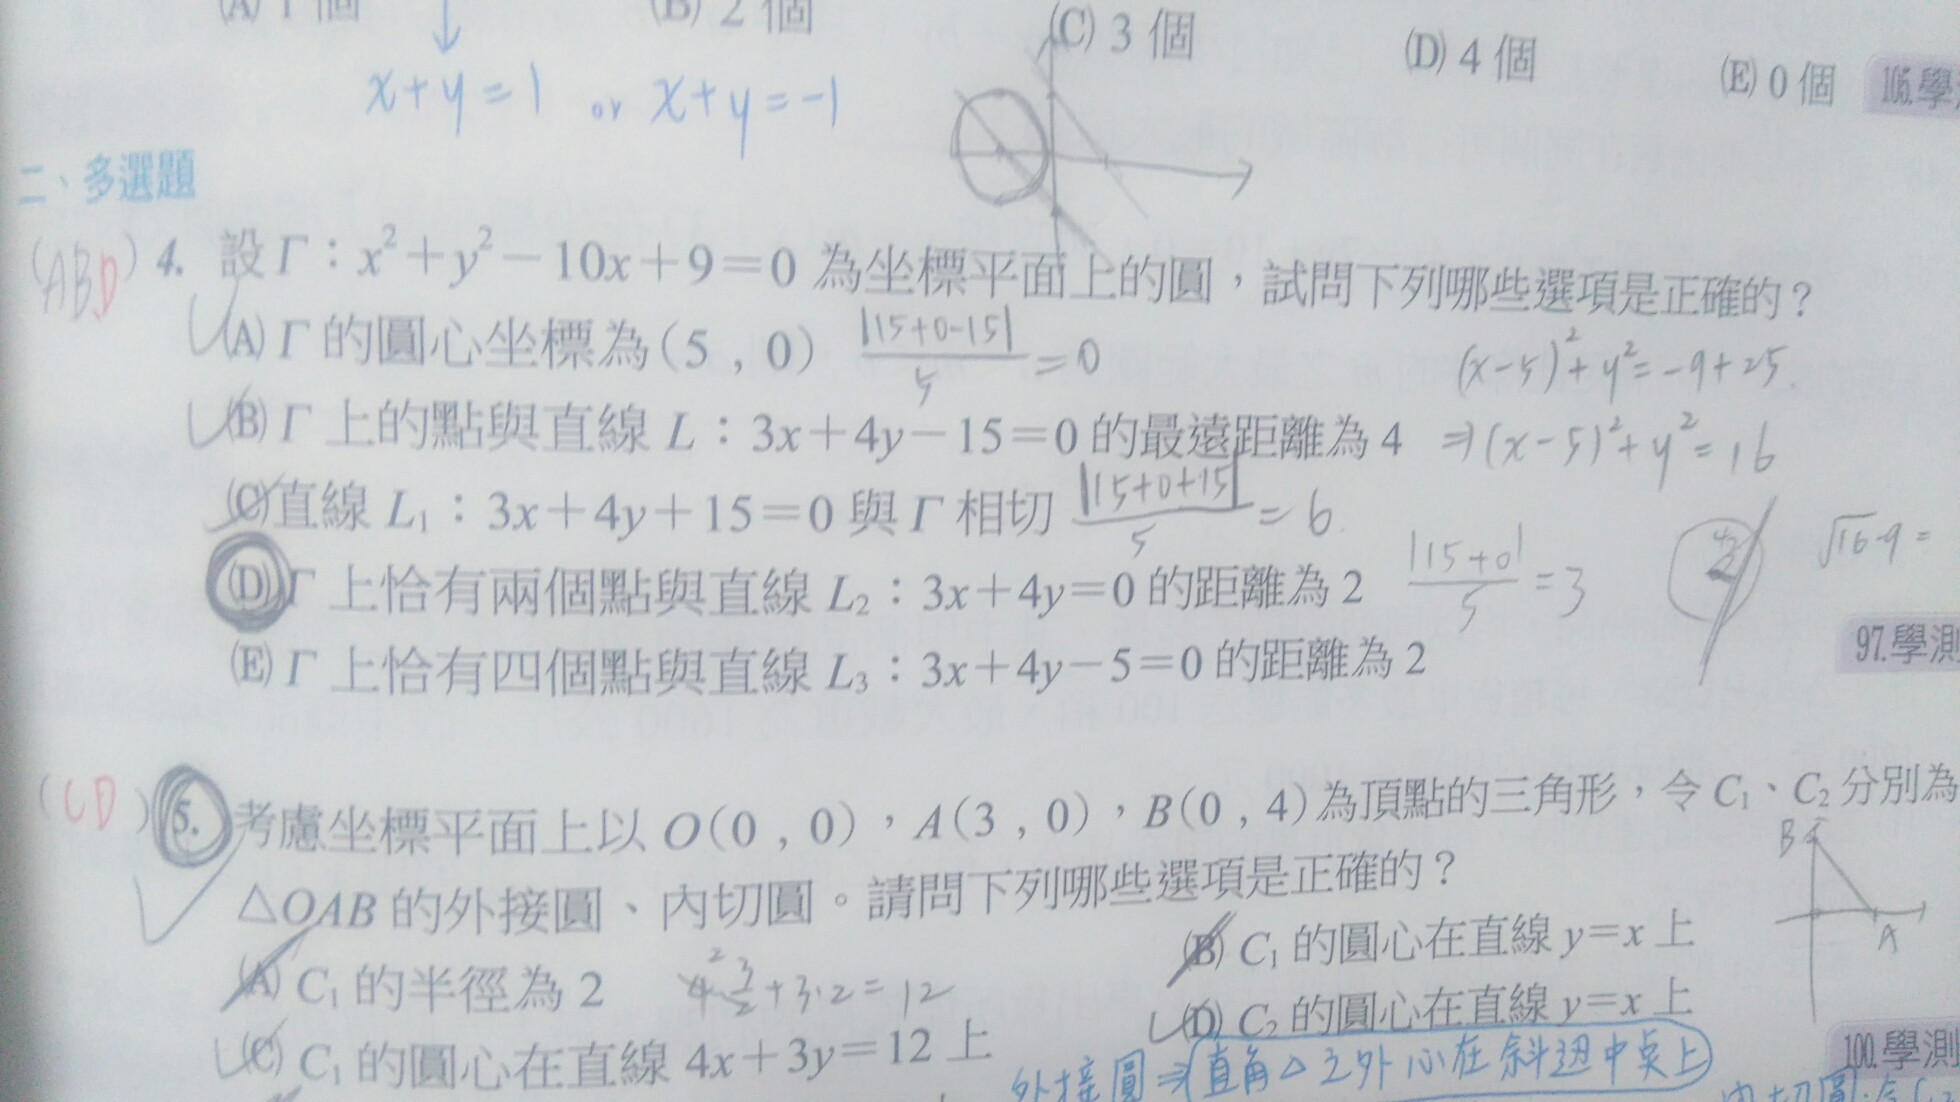 (A) 1 個 (B) 2 個 (C) 3 個 (D) 4 個 (E) 0 個
x+y=1 or x+y=-1
二、多選題
(ABD) 4. 設Γ：x²+y²-10x+9=0 為坐標平面上的圓，試問下列哪些選項是正確的？
(A) Γ 的圓心坐標為(5 , 0) |15+0-15|/5=0 (x-5)²+y²=-9+25
(B) Γ 上的點與直線 L：3x+4y-15=0 的最遠距離為 4 ⇒(x-5)²+y²=16
(C) 直線 L₁：3x+4y+15=0 與 Γ 相切 |15+0+15|/5=6
(D) Γ 上恰有兩個點與直線 L₂：3x+4y=0 的距離為 2 |15+0|/5=3 √16-9 =
(E) Γ 上恰有四個點與直線 L₃：3x+4y-5=0 的距離為 2
97.學測
(CD) 5. 考慮坐標平面上以 O(0 , 0)，A(3 , 0)，B(0 , 4)為頂點的三角形，令 C₁、C₂ 分別為
△OAB 的外接圓、內切圓。請問下列哪些選項是正確的？
B
A
(A) C₁ 的半徑為 2 4·3/2+3·2=12 (B) C₁ 的圓心在直線 y=x 上
(C) C₁ 的圓心在直線 4x+3y=12 上 (D) C₂ 的圓心在直線 y=x 上
外接圓⇒直角△之外心在斜邊中點上
100.學測